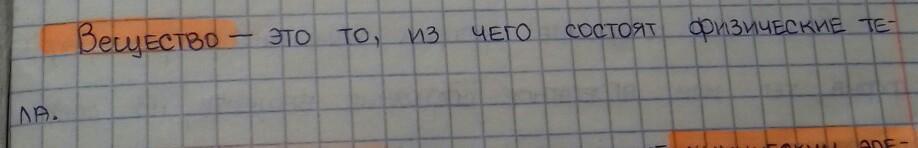 Вещество – это то, из чего состоят физические те-
ла.